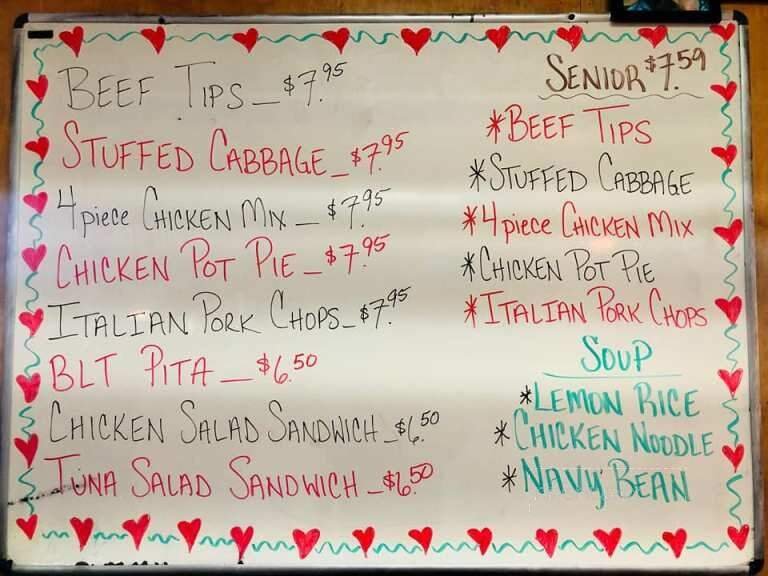 BEEF TIPS_$7.95
STUFFED CABBAGE_$7.95
4 piece CHICKEN MIX_$7.95
CHICKEN POT PIE_$7.95
ITALIAN PORK CHOPS_$7.95
BLT PITA_$6.50
CHICKEN SALAD SANDWICH_$6.50
TUNA SALAD SANDWICH_$6.50
SENIOR $7.59
*BEEF TIPS
*STUFFED CABBAGE
*4 piece CHICKEN MIX
*CHICKEN POT PIE
*ITALIAN PORK CHOPS
SOUP
*LEMON RICE
*CHICKEN NOODLE
*NAVY BEAN